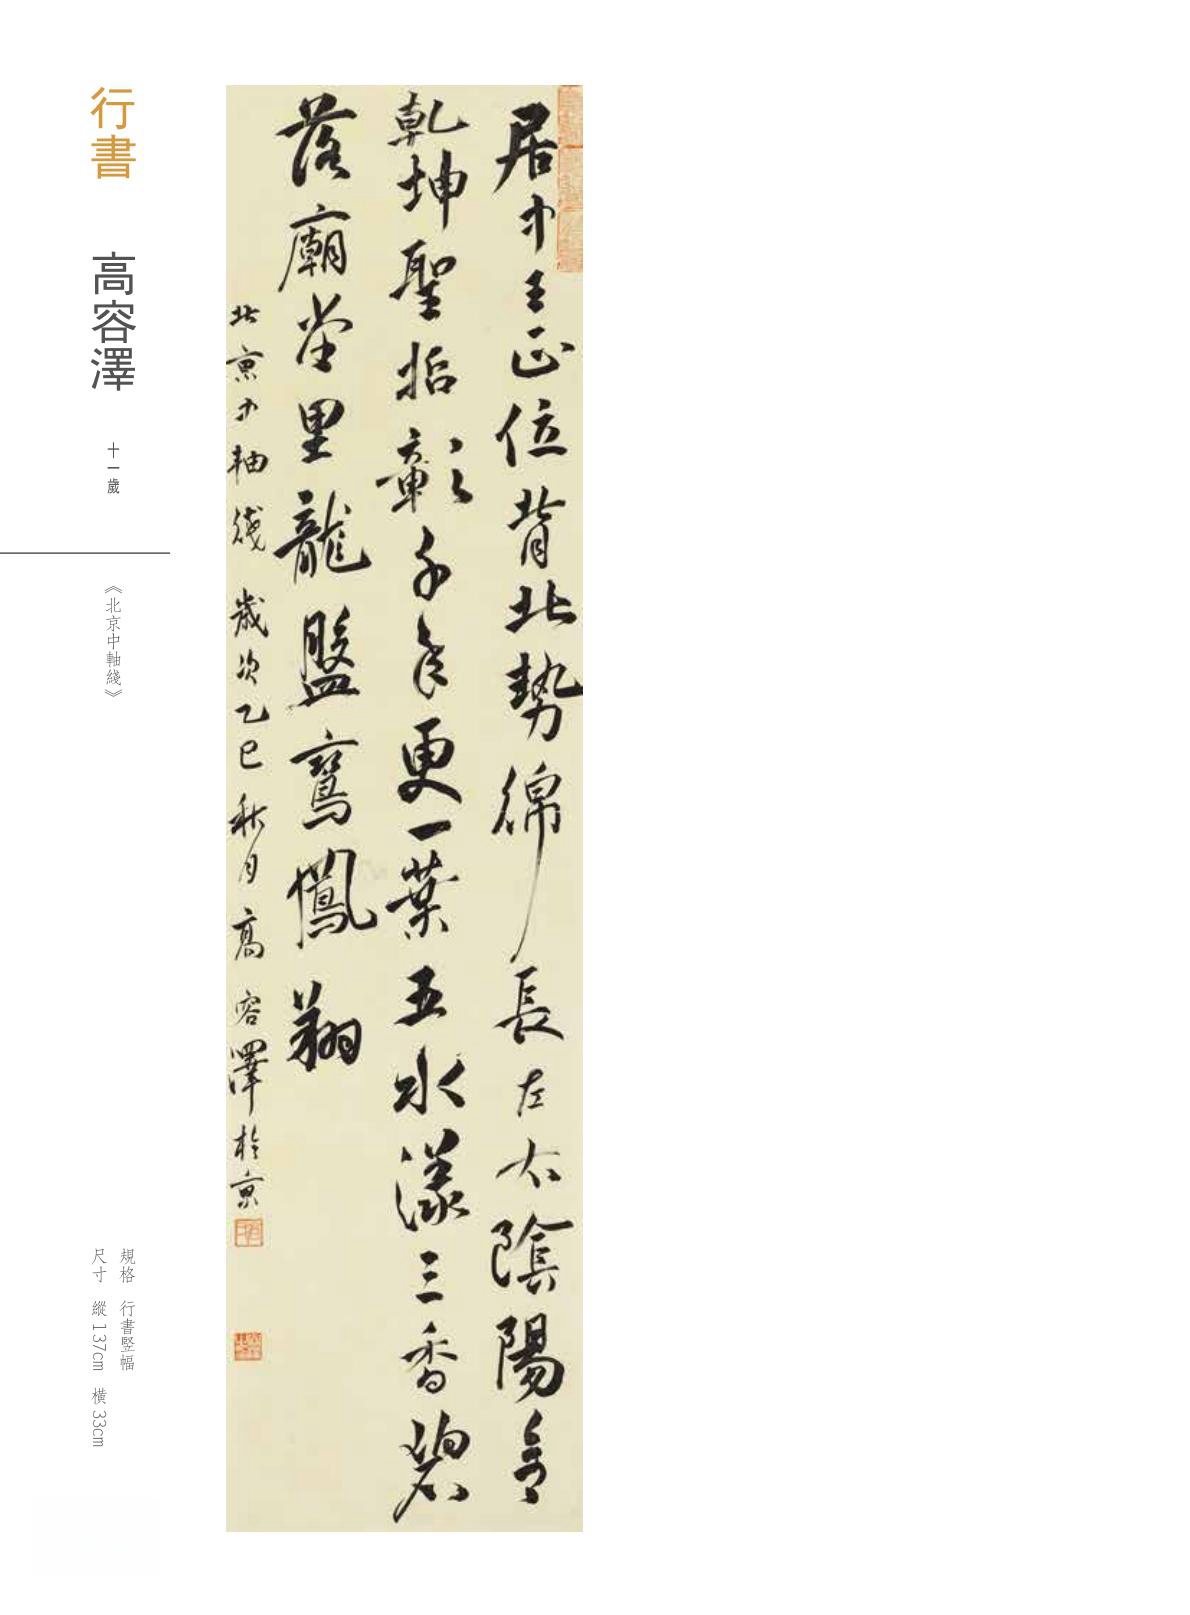 行書 高容澤 十一歲
《北京中軸綫》
規格 行書竪幅
尺寸 縱137cm 橫33cm
居中主正位背北勢綿長左右陰陽合
乾坤聖哲彰千年更一葉五水漾三香碧
落廟堂里龍盤鸞鳳翔
北京中軸綫 歲次乙巳秋月高容澤於京